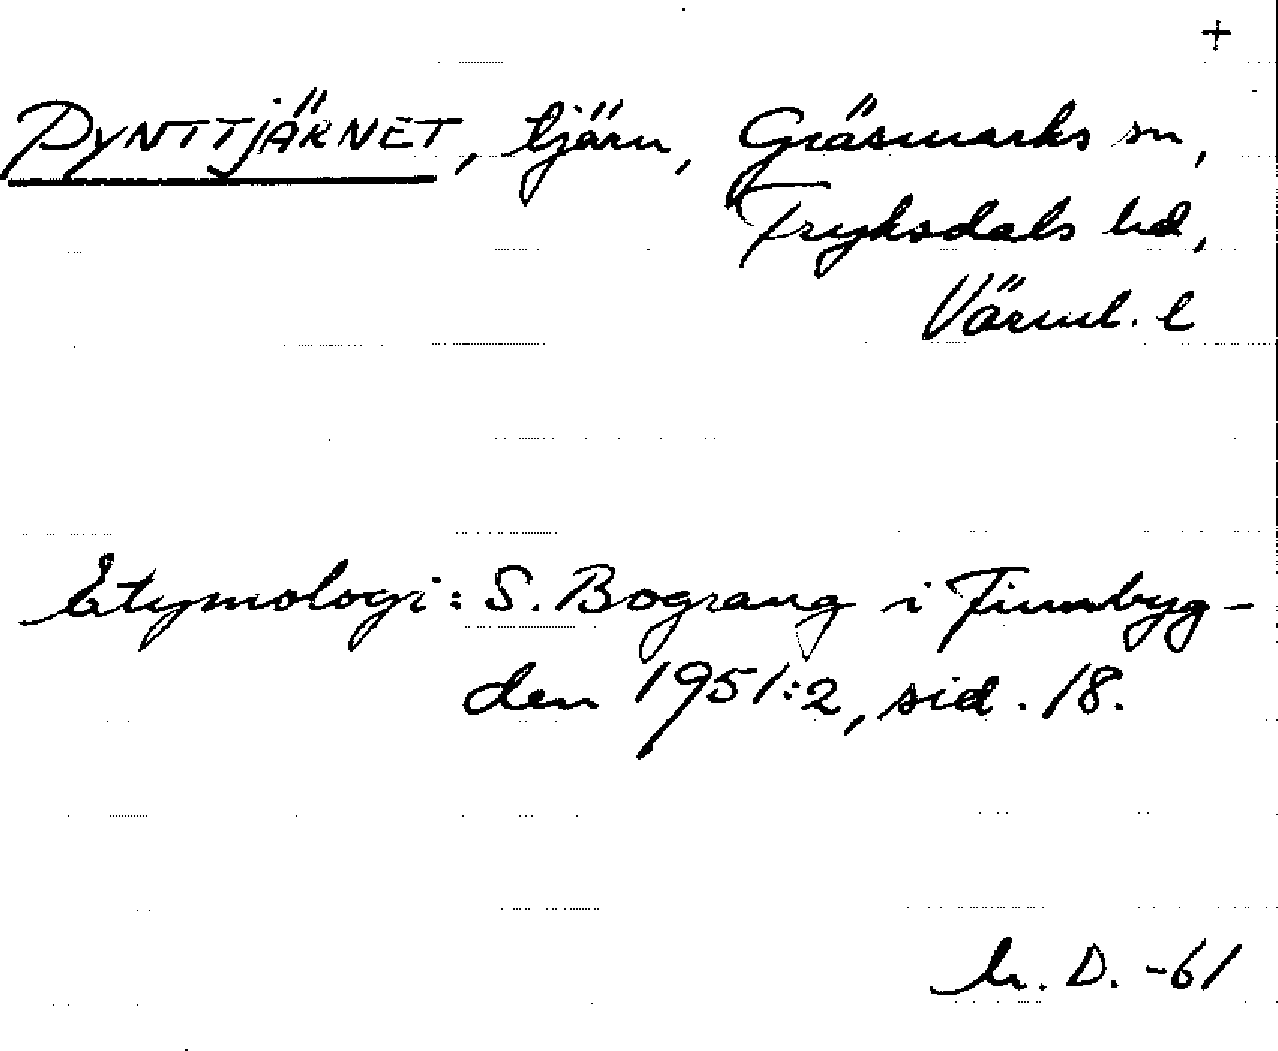 +
PYNTTJÄRNET, tjärn, Gräsmarks sn,
Fryksdals hd,
Värml. l
Etymologi: S. Bograng i Finnbyg-
den 1951:2, sid. 18.
D. -61